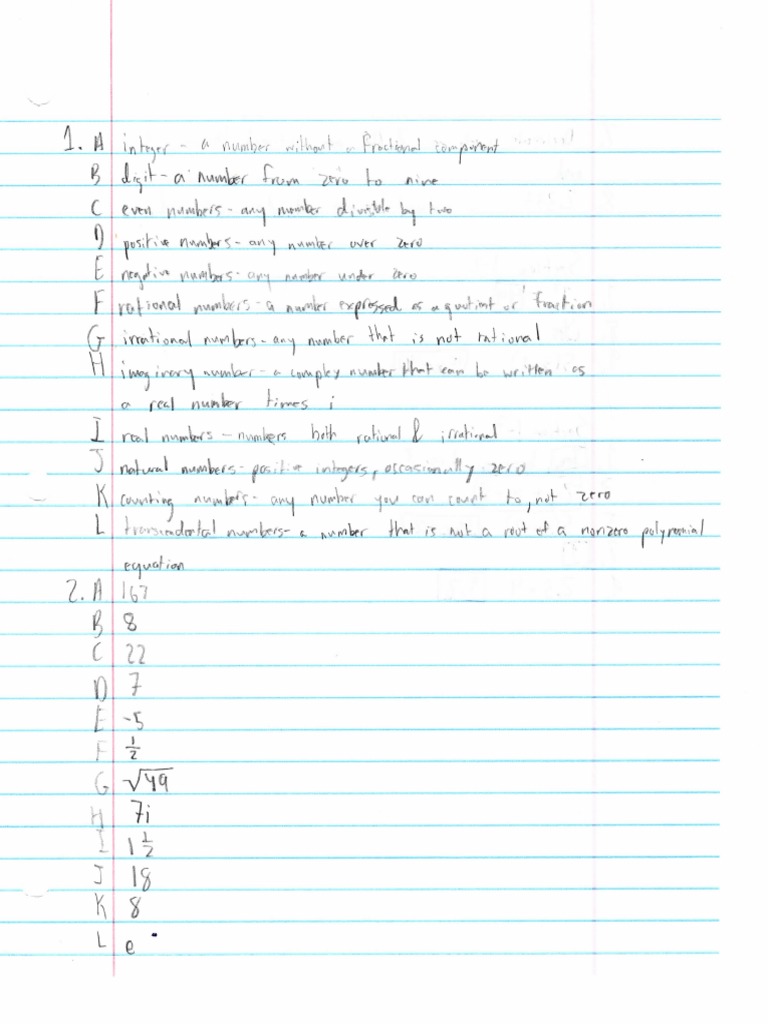 1. A integer - a number without a fractional component
B digit - a number from zero to nine
C even numbers - any number divisible by two
D positive numbers - any number over zero
E negative numbers - any number under zero
F rational numbers - a number expressed as a quotient or fraction
G irrational numbers - any number that is not rational
H imaginary number - a complex number that can be written as
a real number times i
I real numbers - numbers both rational & irrational
J natural numbers - positive integers, occasionally zero
K counting numbers - any number you can count to, not zero
L numbers - a number that is not a root of a nonzero polynomial
equation
2. A 167
B 8
C 22
D 7
E -5
F 1/2
G √49
H 7i
I 1 1/2
J 18
K 8
L e